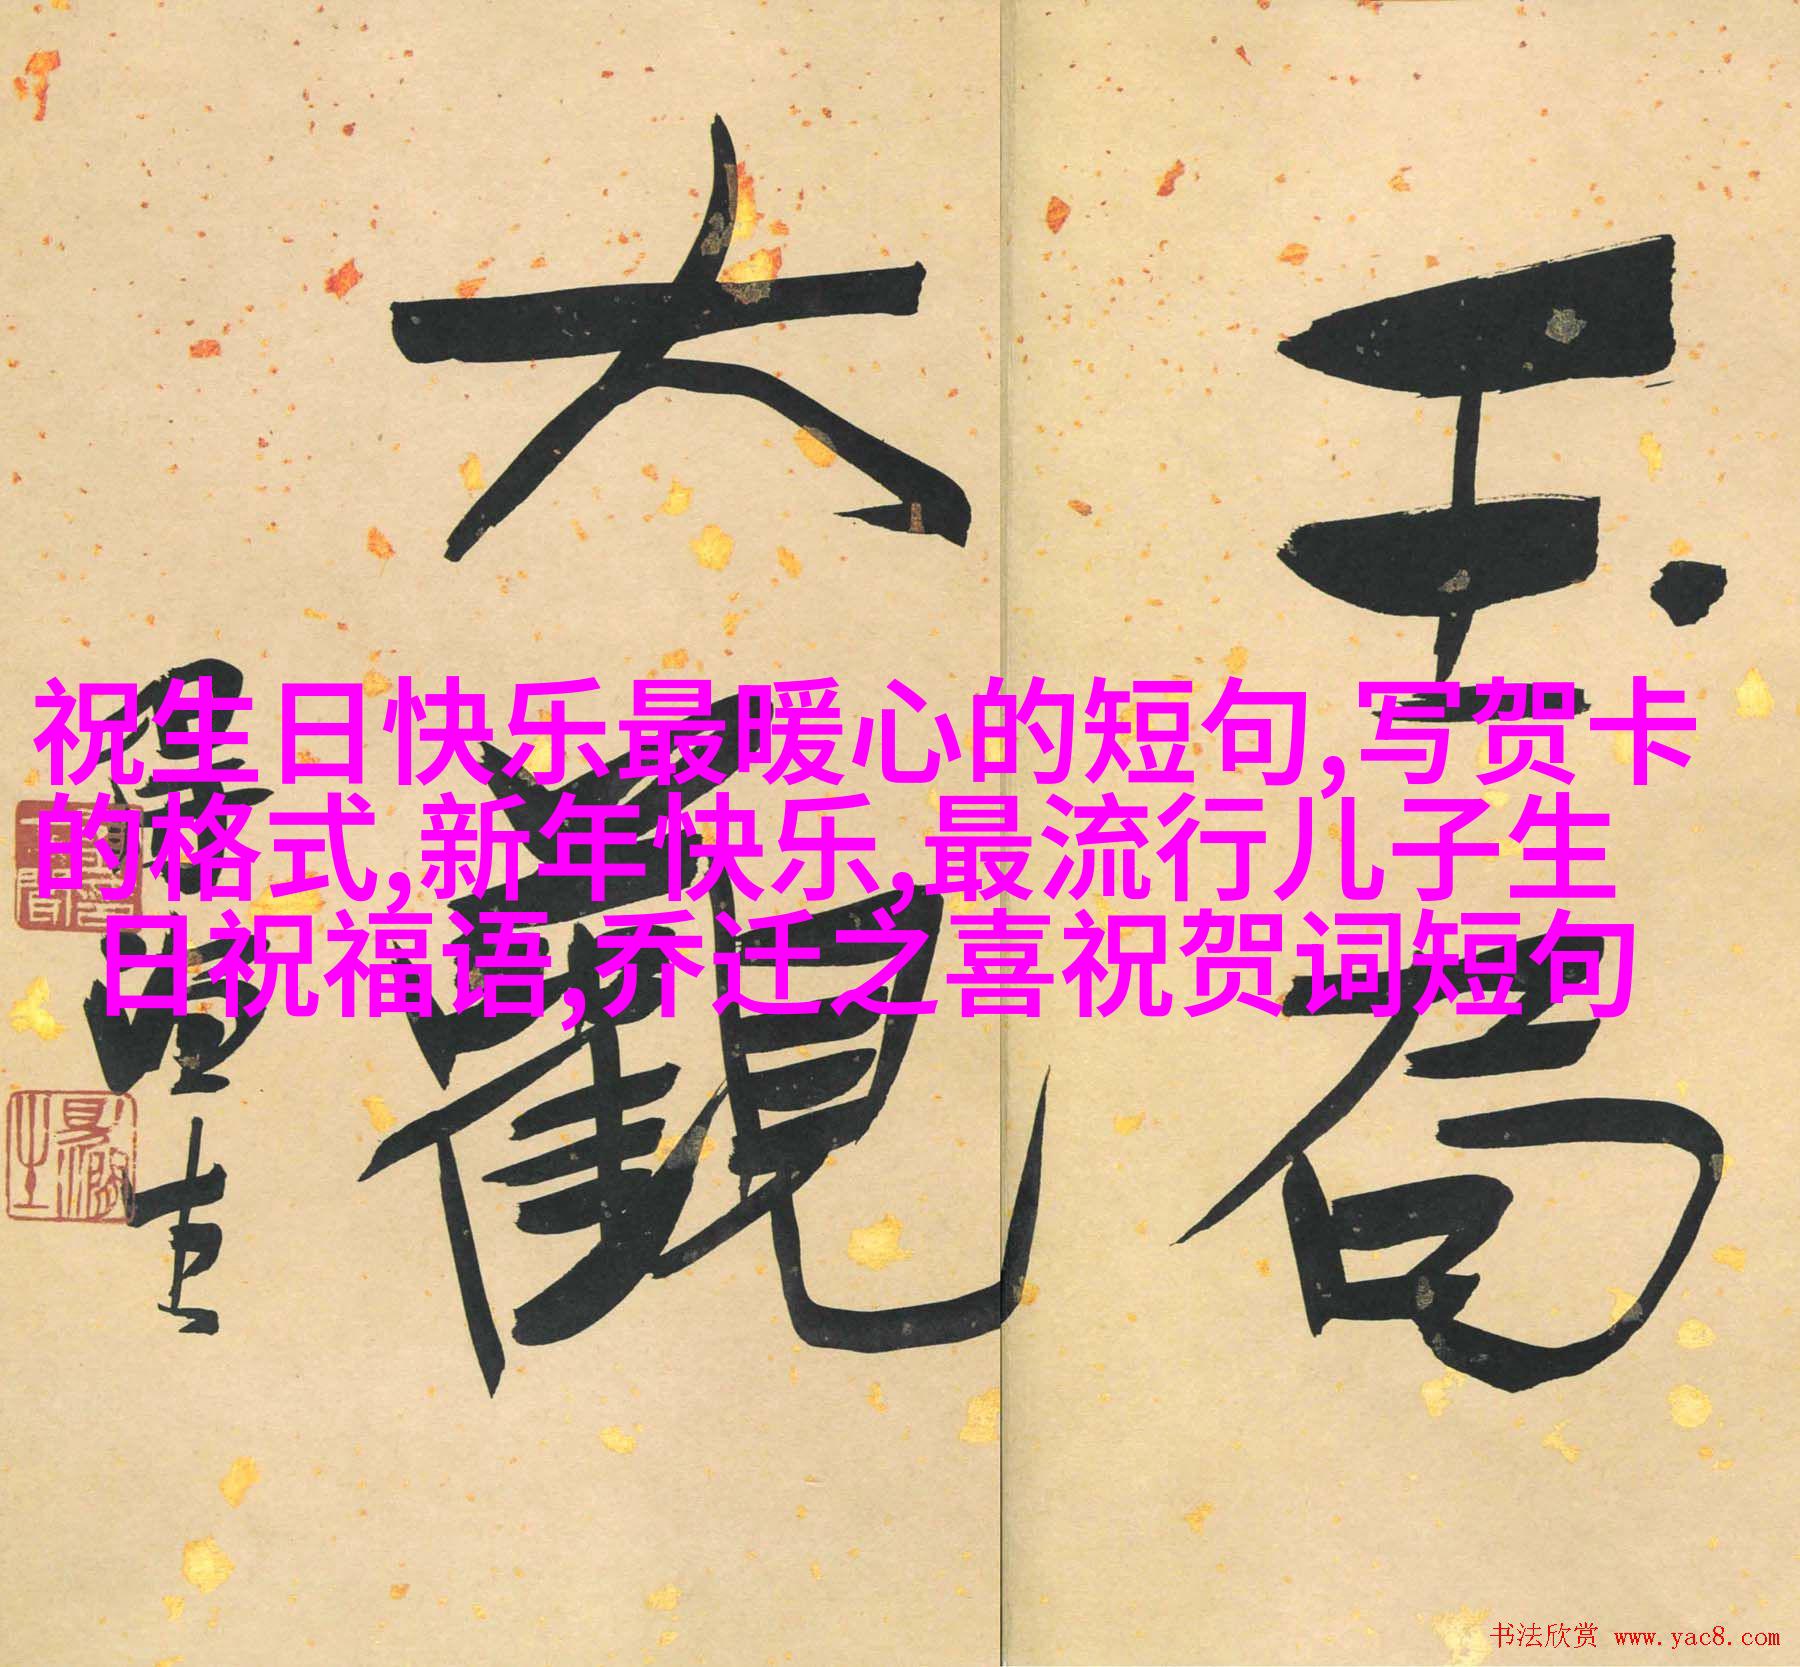 玉局
大觀
祝生日快乐最暖心的短句,写贺卡
的格式,新年快乐,最流行儿子生
日祝福语,乔迁之喜祝贺词短句
书法欣赏 www.yac8.com